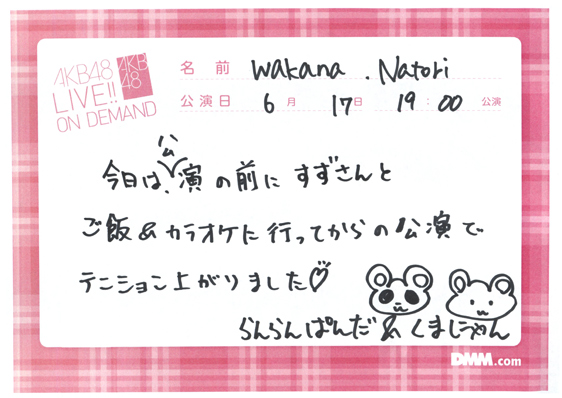 AKB48
LIVE!!
ON DEMAND
AKB
48
名前 Wakana . Natori
公演日 6月 17日 19:00 公演
今日は、公演の前にすずさんと
ご飯&カラオケに行ってからの公演で
テンション上がりました♡
らんらんぱんだ & くまじゃん
DMM.com